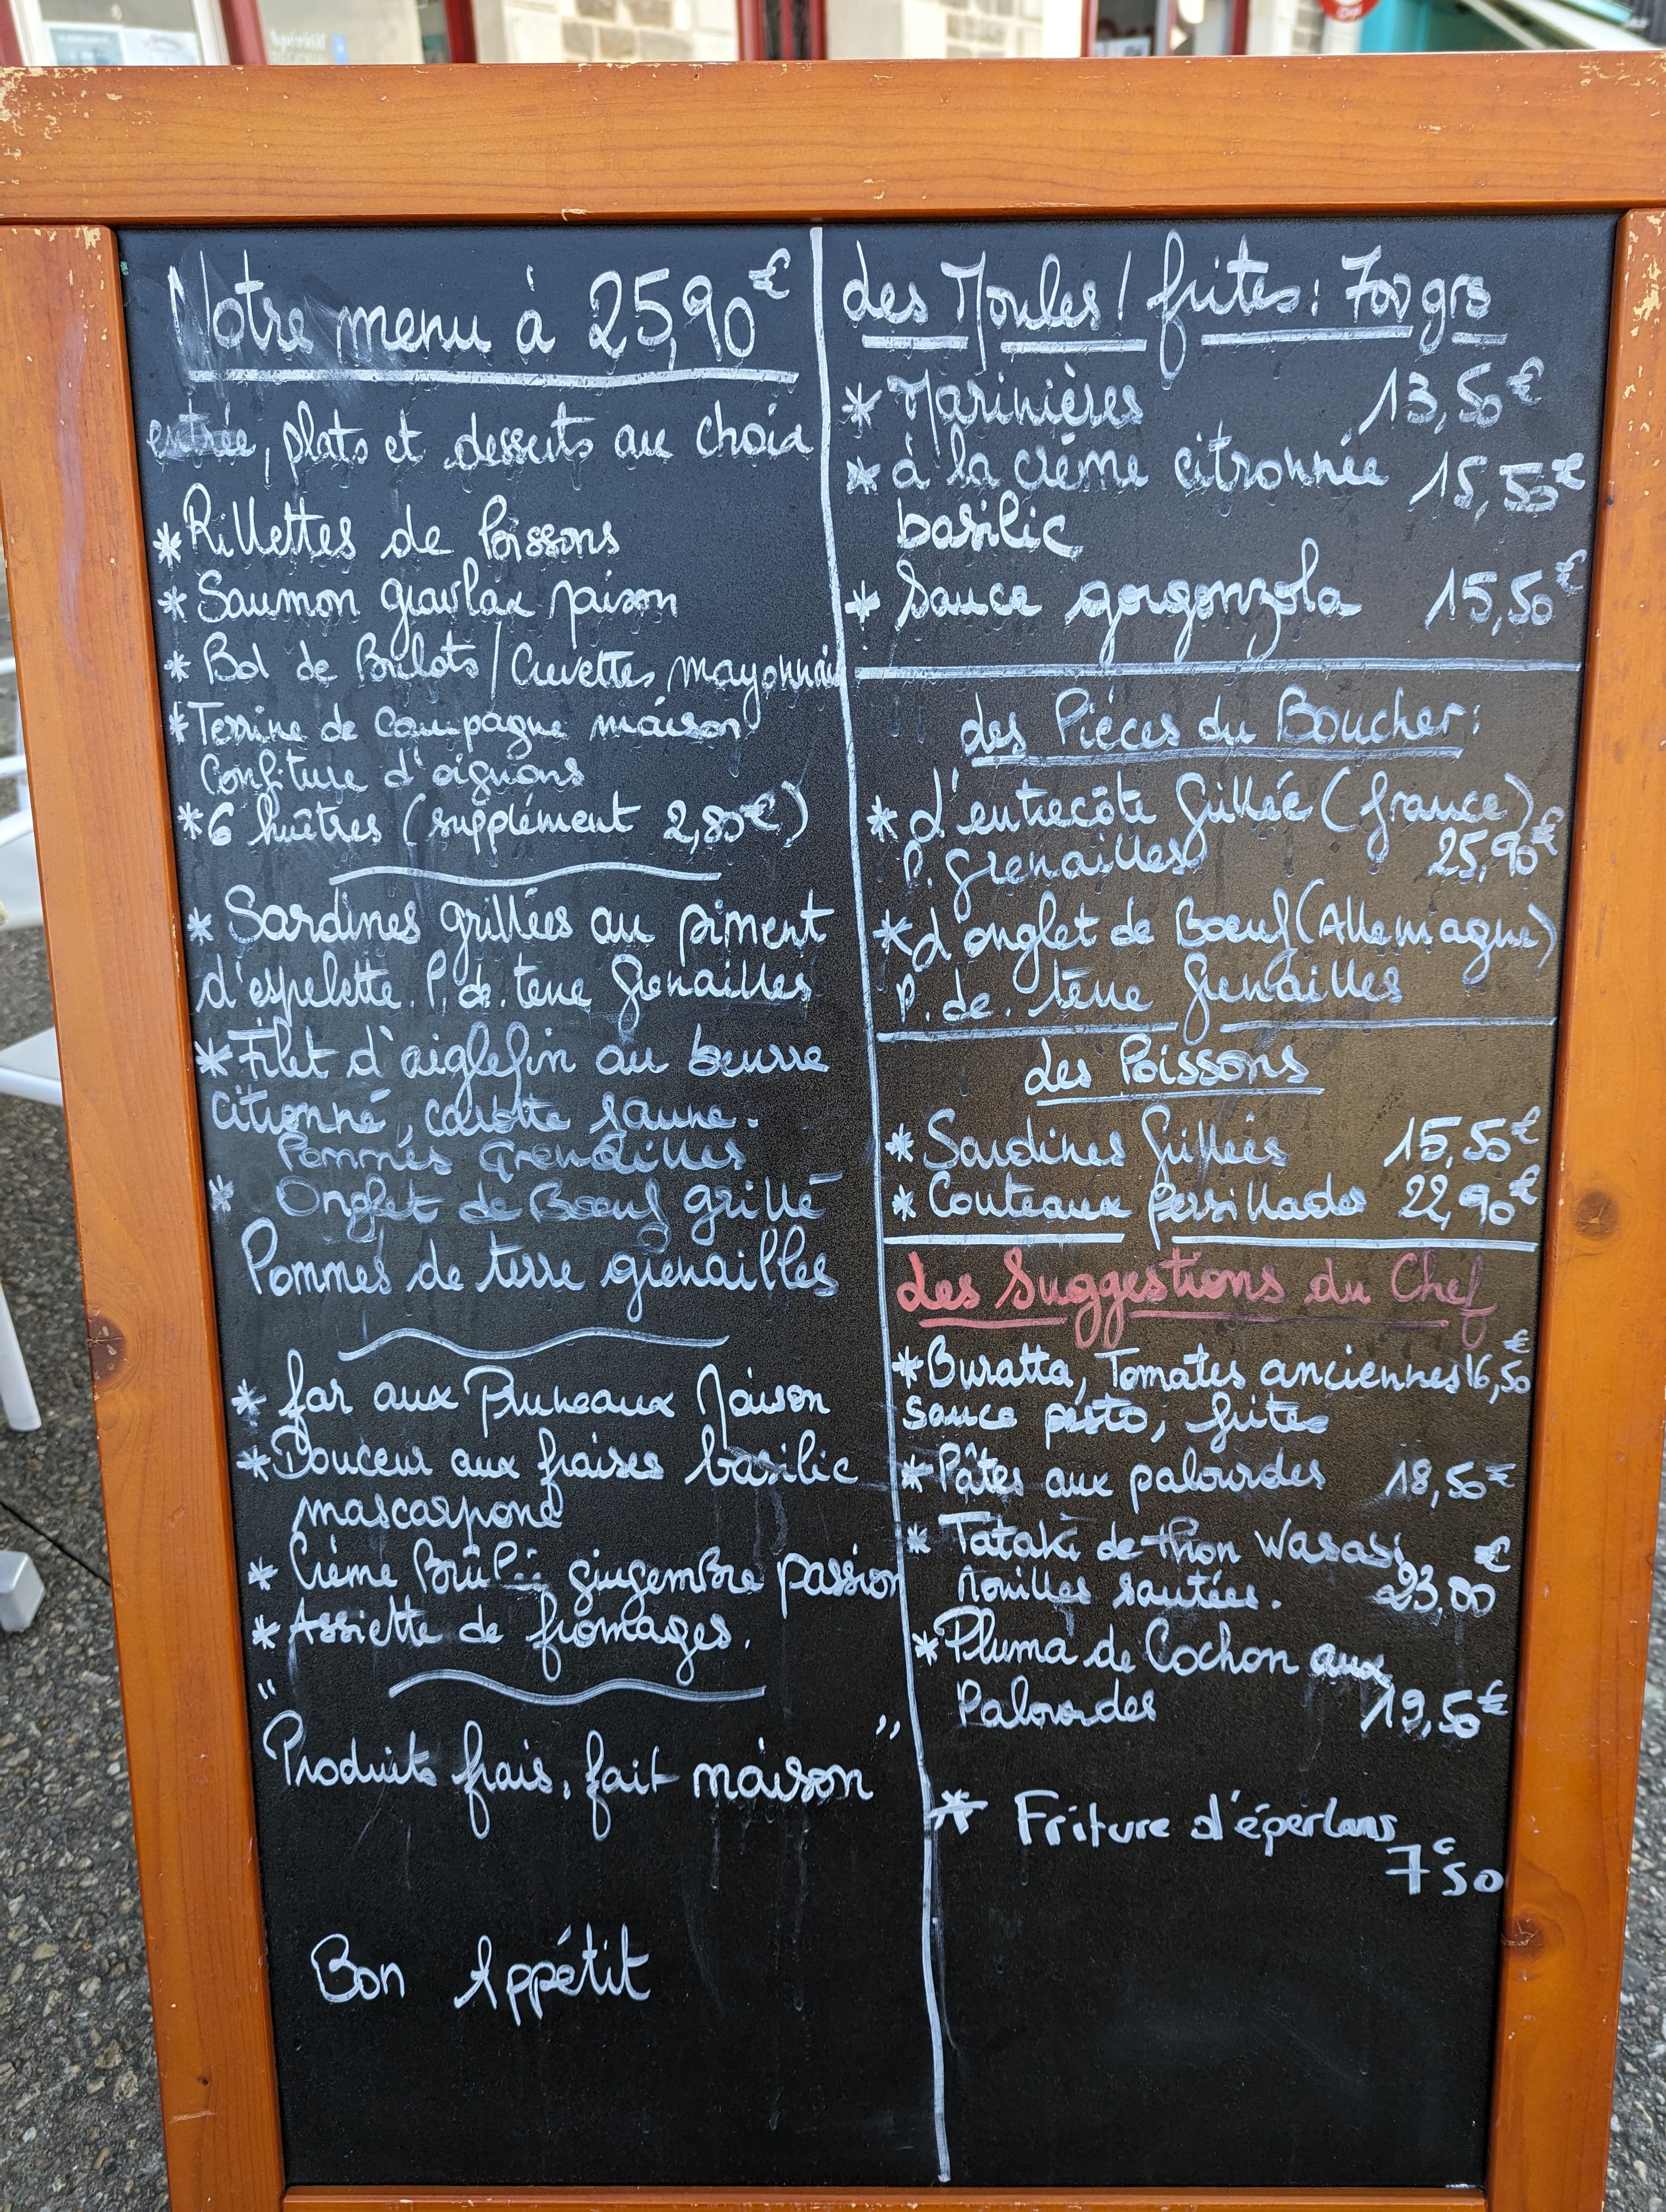 Notre menu à 25,90€
entrée, plats et desserts au choix
*Rillettes de Poissons
*Saumon gravlax maison
*Bol de Bulots / Crevettes, mayonnaise
*Terrine de Campagne maison
Confiture d'oignons
*6 huîtres (supplément 2,80€)
*Sardines grillées au piment
d'espelette. P. de. terre Grenailles
*Filet d'aiglefin au beurre
citronné, carotte jaune.
Pommes Grenailles
* Onglet de Boeuf grillé
Pommes de terre grenailles
* far aux Pruneaux Maison
*Douceur aux fraises basilic
mascarpone
* Crème Brûlée gingembre passion
* Assiette de fromages.
"Produits frais, fait maison"
Bon Appétit
des Moules / frites : 700 grs
* Marinières 13,50€
* à la crème citronnée 15,50€
basilic
* Sauce gorgonzola 15,50€
des Pièces du Boucher :
* d'entrecôte Grillée (france)
P. grenailles 25,90€
*d'onglet de Boeuf (Allemagne)
P. de. terre Grenailles
des Poissons
* Sardines Grillées 15,50€
* Couteaux persillades 22,90€
des Suggestions du Chef
*Buratta, Tomates anciennes 16,50€
Sauce pesto, frites
*Pâtes aux palourdes 18,50€
* Tataki de thon Wasabi
nouilles sautées. 23,00€
*Pluma de Cochon aux
Palourdes 19,50€
* Friture d'éperlans
7€50